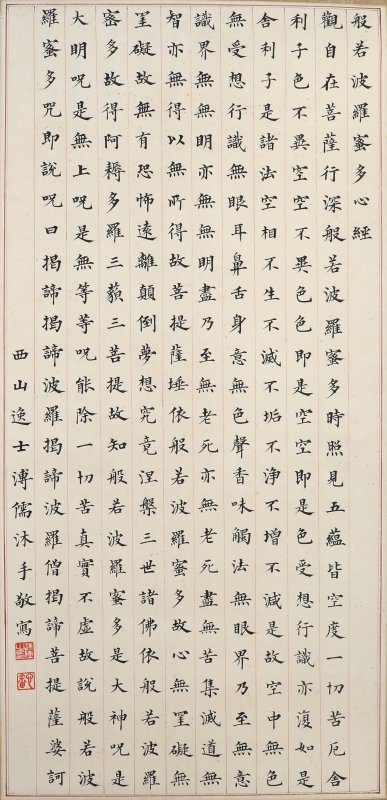 般若波羅蜜多心經
觀自在菩薩行深般若波羅蜜多時照見五蘊皆空度一切苦厄舍
利子色不異空空不異色色即是空空即是色受想行識亦復如是
舍利子是諸法空相不生不滅不垢不淨不增不減是故空中無色
無受想行識無眼耳鼻舌身意無色聲香味觸法無眼界乃至無意
識界無無明亦無無明盡乃至無老死亦無老死盡無苦集滅道無
智亦無得以無所得故菩提薩埵依般若波羅蜜多故心無罣礙無
罣礙故無有恐怖遠離顛倒夢想究竟涅槃三世諸佛依般若波羅
密多故得阿耨多羅三藐三菩提故知般若波羅蜜多是大神呪是
大明呪是無上呪是無等等呪能除一切苦真實不虛故說般若波
羅蜜多咒即說呪曰揭諦揭諦波羅揭諦波羅僧揭諦菩提薩婆訶
西山逸士溥儒沐手敬寫